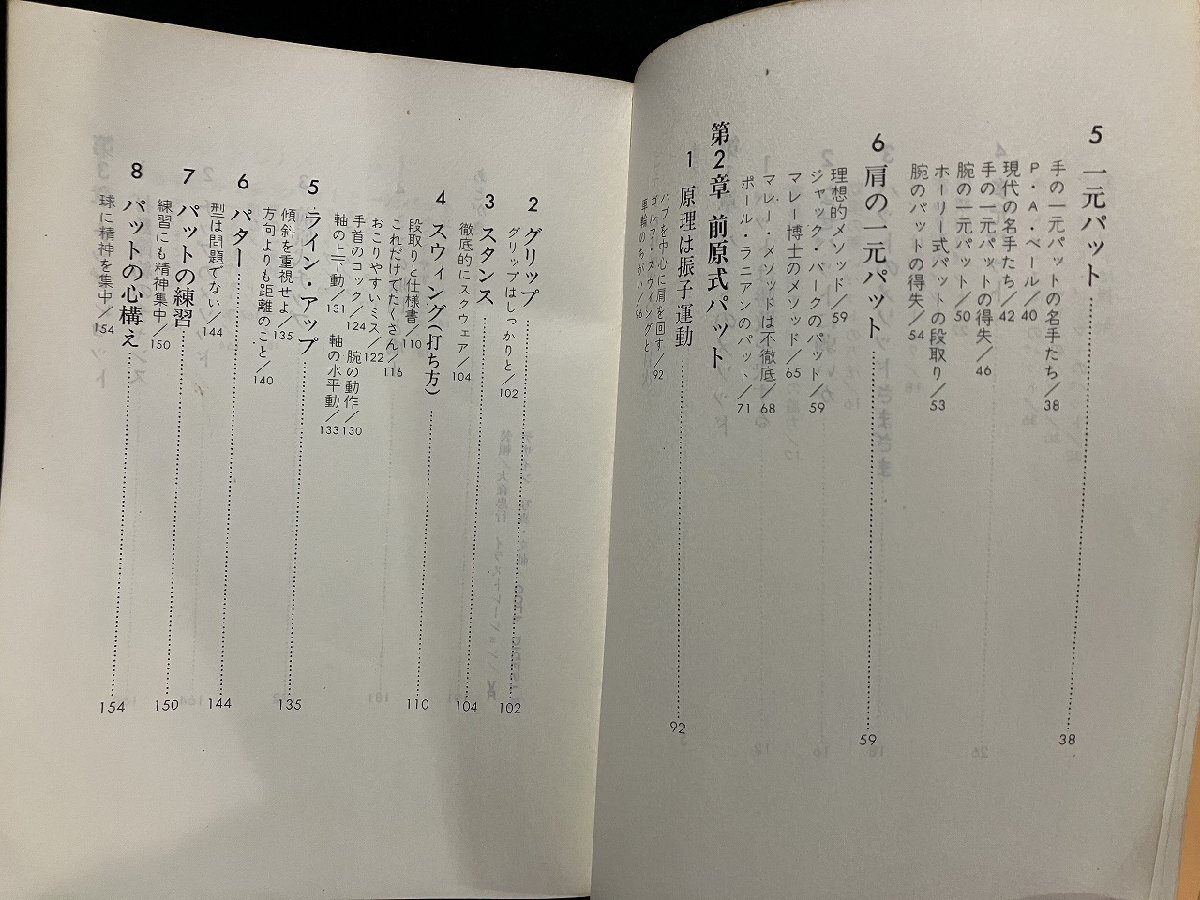 5 一元パット……38
手の一元パットの名手たち／38
P・A・ベール／40
現代の名手たち／42
手の一元パットの得失／46
腕の一元パット／50
ホーリー式パットの段取り／53
腕のパットの得失／54
6 肩の一元パット……59
理想的メソッド／59
ジャック・バークのパット／59
マレー博士のメソッド／65
マレー・メソッドは不徹底／68
ポール・ラニアンのパット／71
第2章 前原式パット
1 原理は振子運動……92
ハブを中心に肩を回す／92
ゴルフ・スウィングと
車輪のちがい／
2 グリップ……102
グリップはしっかりと／102
3 スタンス……104
徹底的にスクウェア／104
4 スウィング（打ち方）……110
段取りと仕様書／110
これだけでたくさん／116
おこりやすいミス／122
手首のコック／124
腕の動作／130
軸の上下動／131
軸の水平動／133
5 ライン・アップ……135
傾斜を重視せよ／135
方向よりも距離のこと／140
6 パター……144
型は問題でない／144
7 パットの練習……150
練習にも精神集中／150
8 パットの心構え……154
球に精神を集中／154